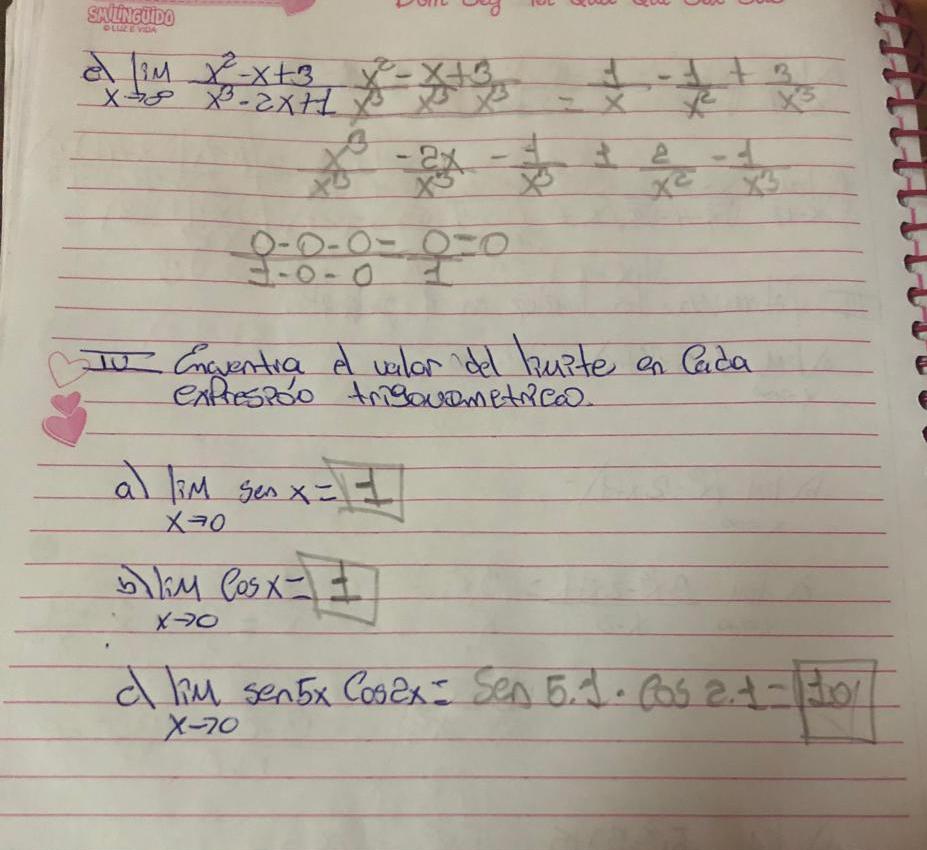 SMILINGÜIDO
© LUZ E VIDA
e) lim x²-x+3 / x³-2x+1 x²/x³ - x/x³ + 3/x³ = 1/x - 1/x² + 3/x³
x→∞
x³/x³ - 2x/x³ - 1/x³ 1 2/x² - 1/x³
0-0-0/1-0-0 = 0/1 = 0
IV Encuentra el valor del limite en Cada
expresión trigonometrica.
a) lim sen x = 1
x→0
b) lim Cos x = 1
x→0
c) lim sen5x Cos2x = Sen 5.1 · Cos 2.1 = 10
x→0